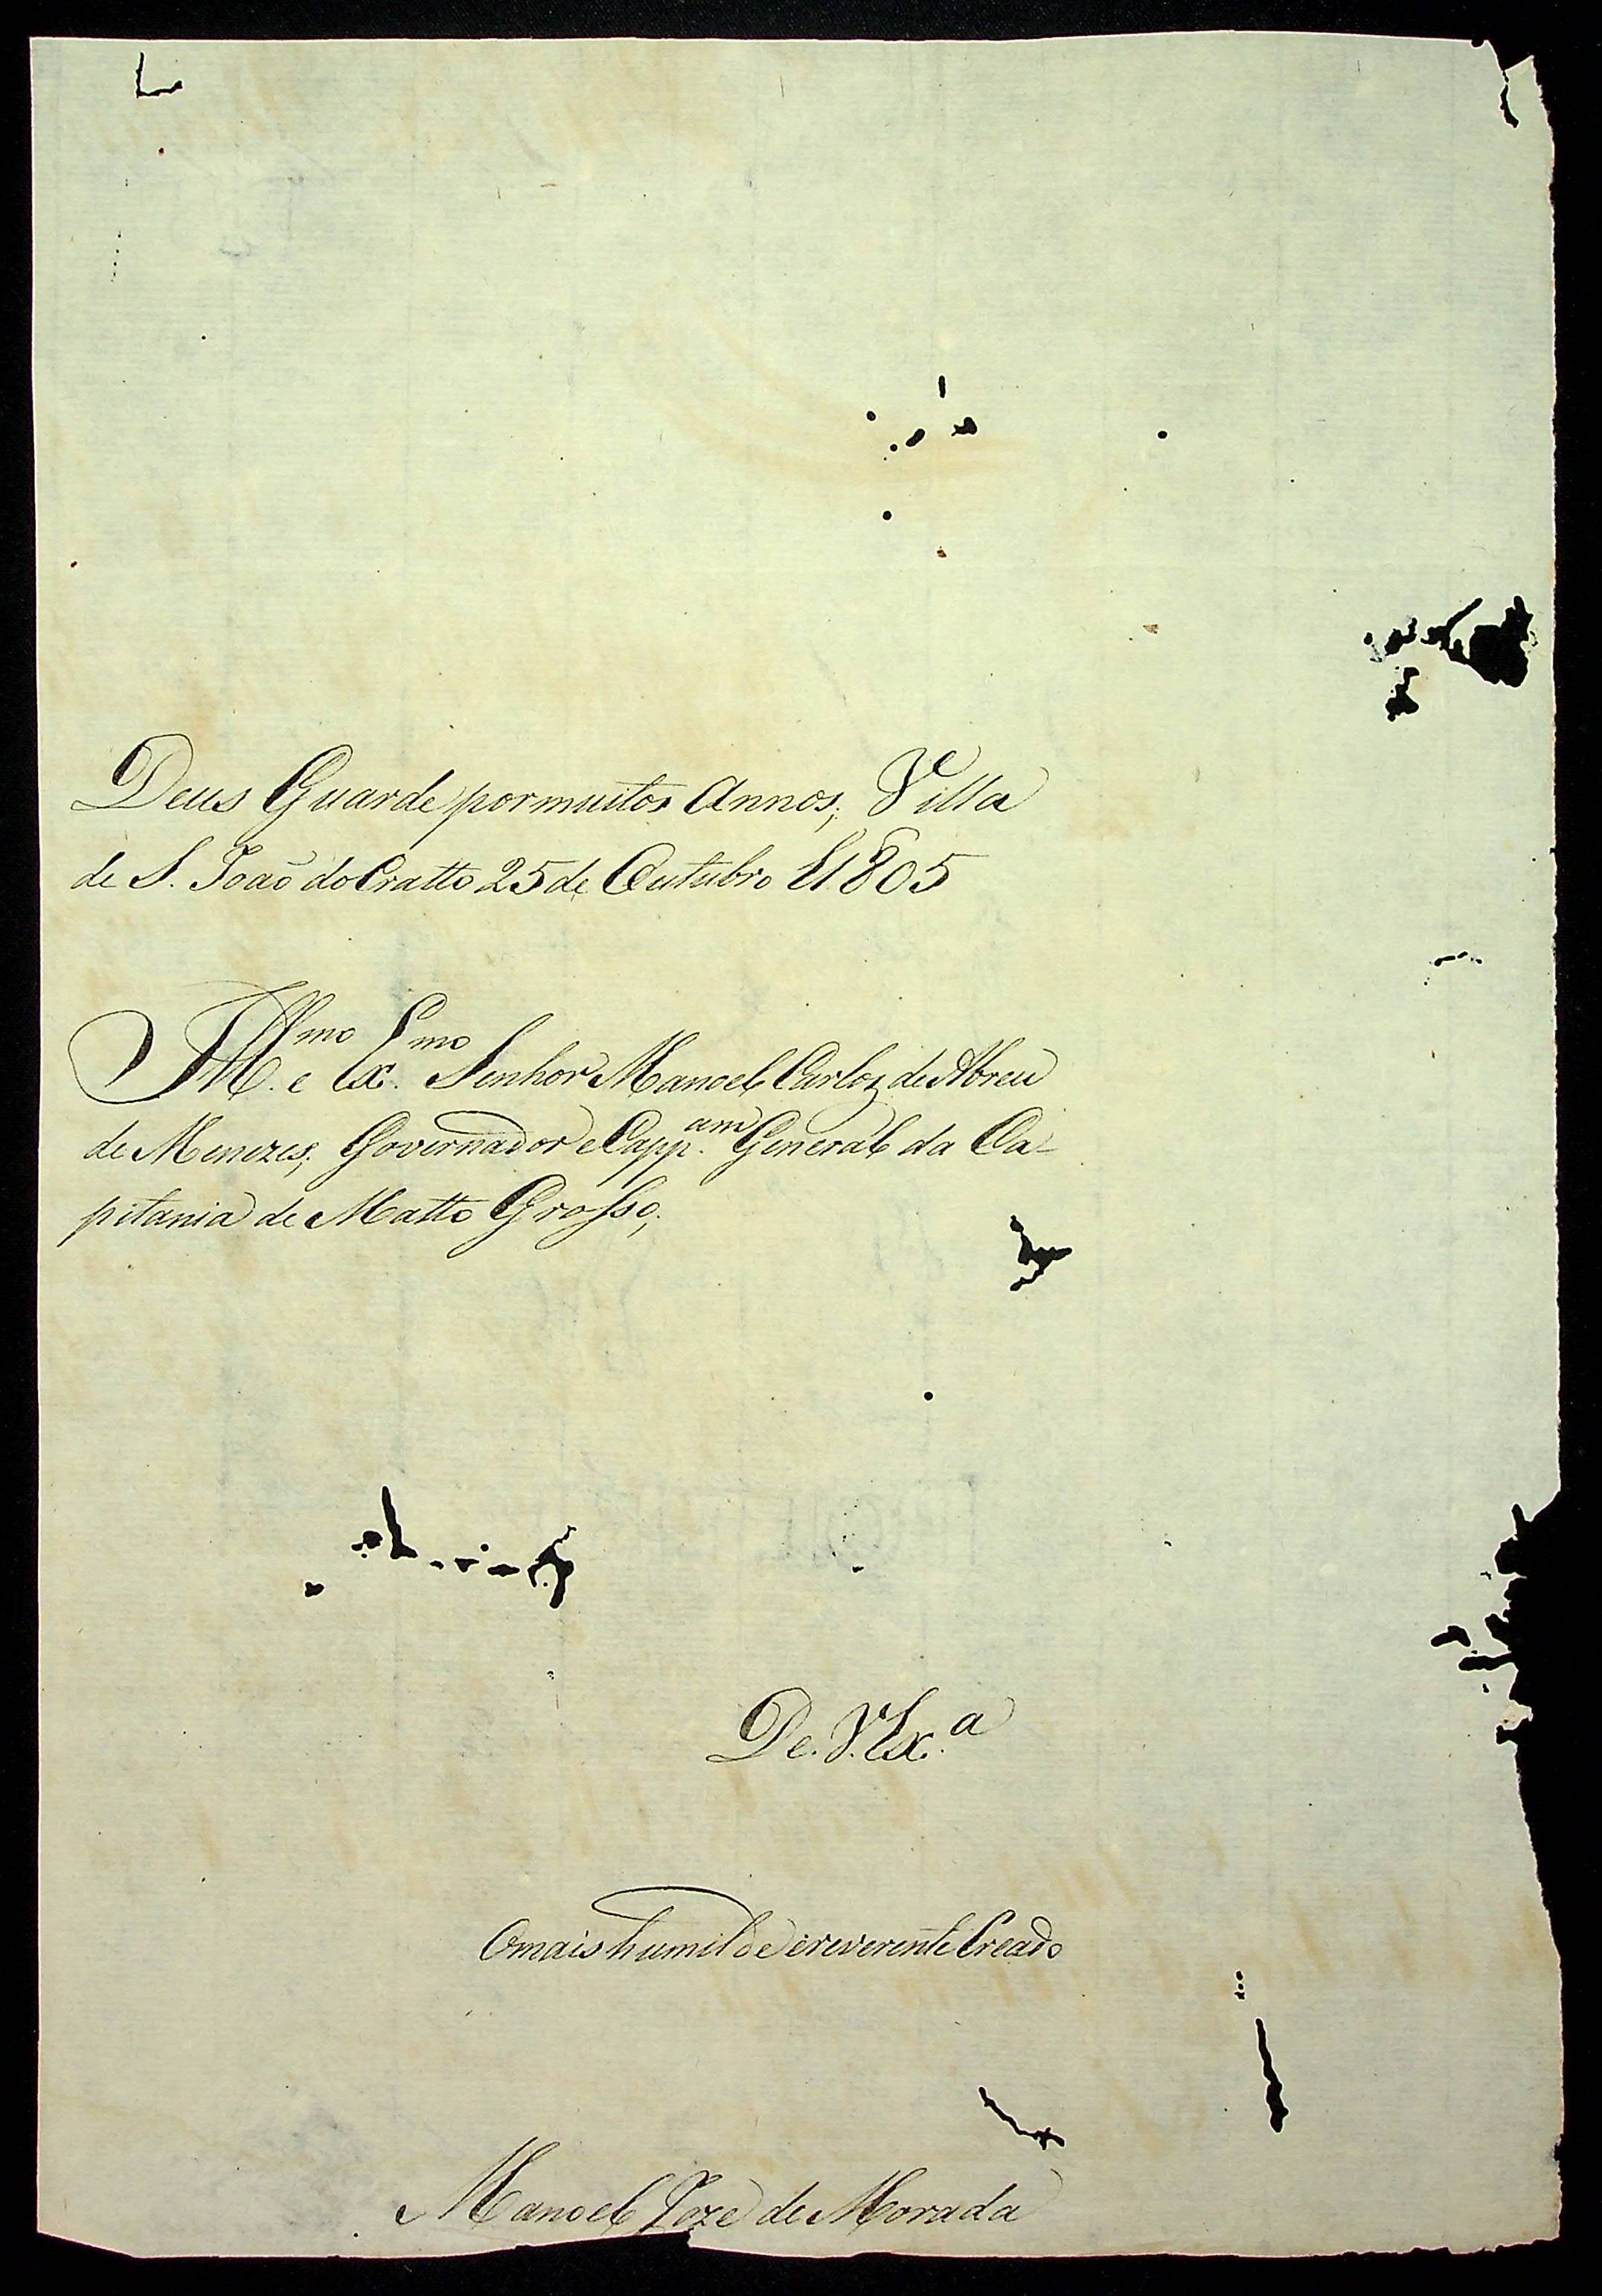 Deus Guarde por muitos Annos, Villa
de S. João do Cratto 25 de Outubro 1805
Ill.mo e Ex.mo Senhor Manoel Carlos de Abreu
de Menezes, Governador e Capp.am General da Ca-
pitania de Matto Grosso,
De. V. Ex.a
O mais humilde e reverente Creado
Manoel Joze de Morada